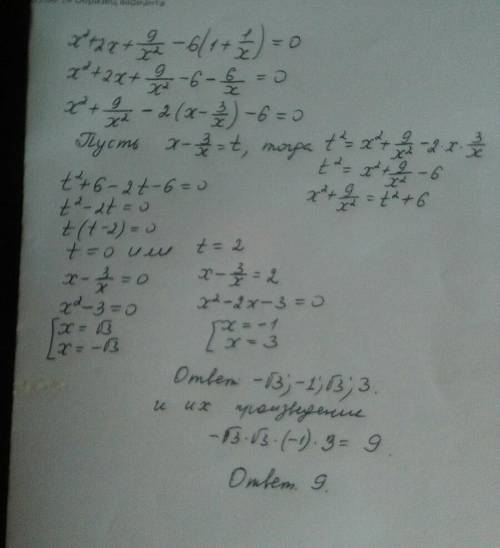 x²+2x+9/x²-6(1+1/x)=0
x²+2x+9/x²-6-6/x=0
x²+9/x²-2(x-3/x)-6=0
Пусть x-3/x=t, тогда t²=x²+9/x²-2·x·3/x
t²=x²+9/x²-6
x²+9/x²=t²+6
t²+6-2t-6=0
t²-2t=0
t(t-2)=0
t=0 или t=2
x-3/x=0 x-3/x=2
x²-3=0 x²-2x-3=0
[x=√3 [x=-1
x=-√3 x=3
Ответ -√3; -1; √3; 3.
и их произведение
-√3·√3·(-1)·3=9
Ответ 9.